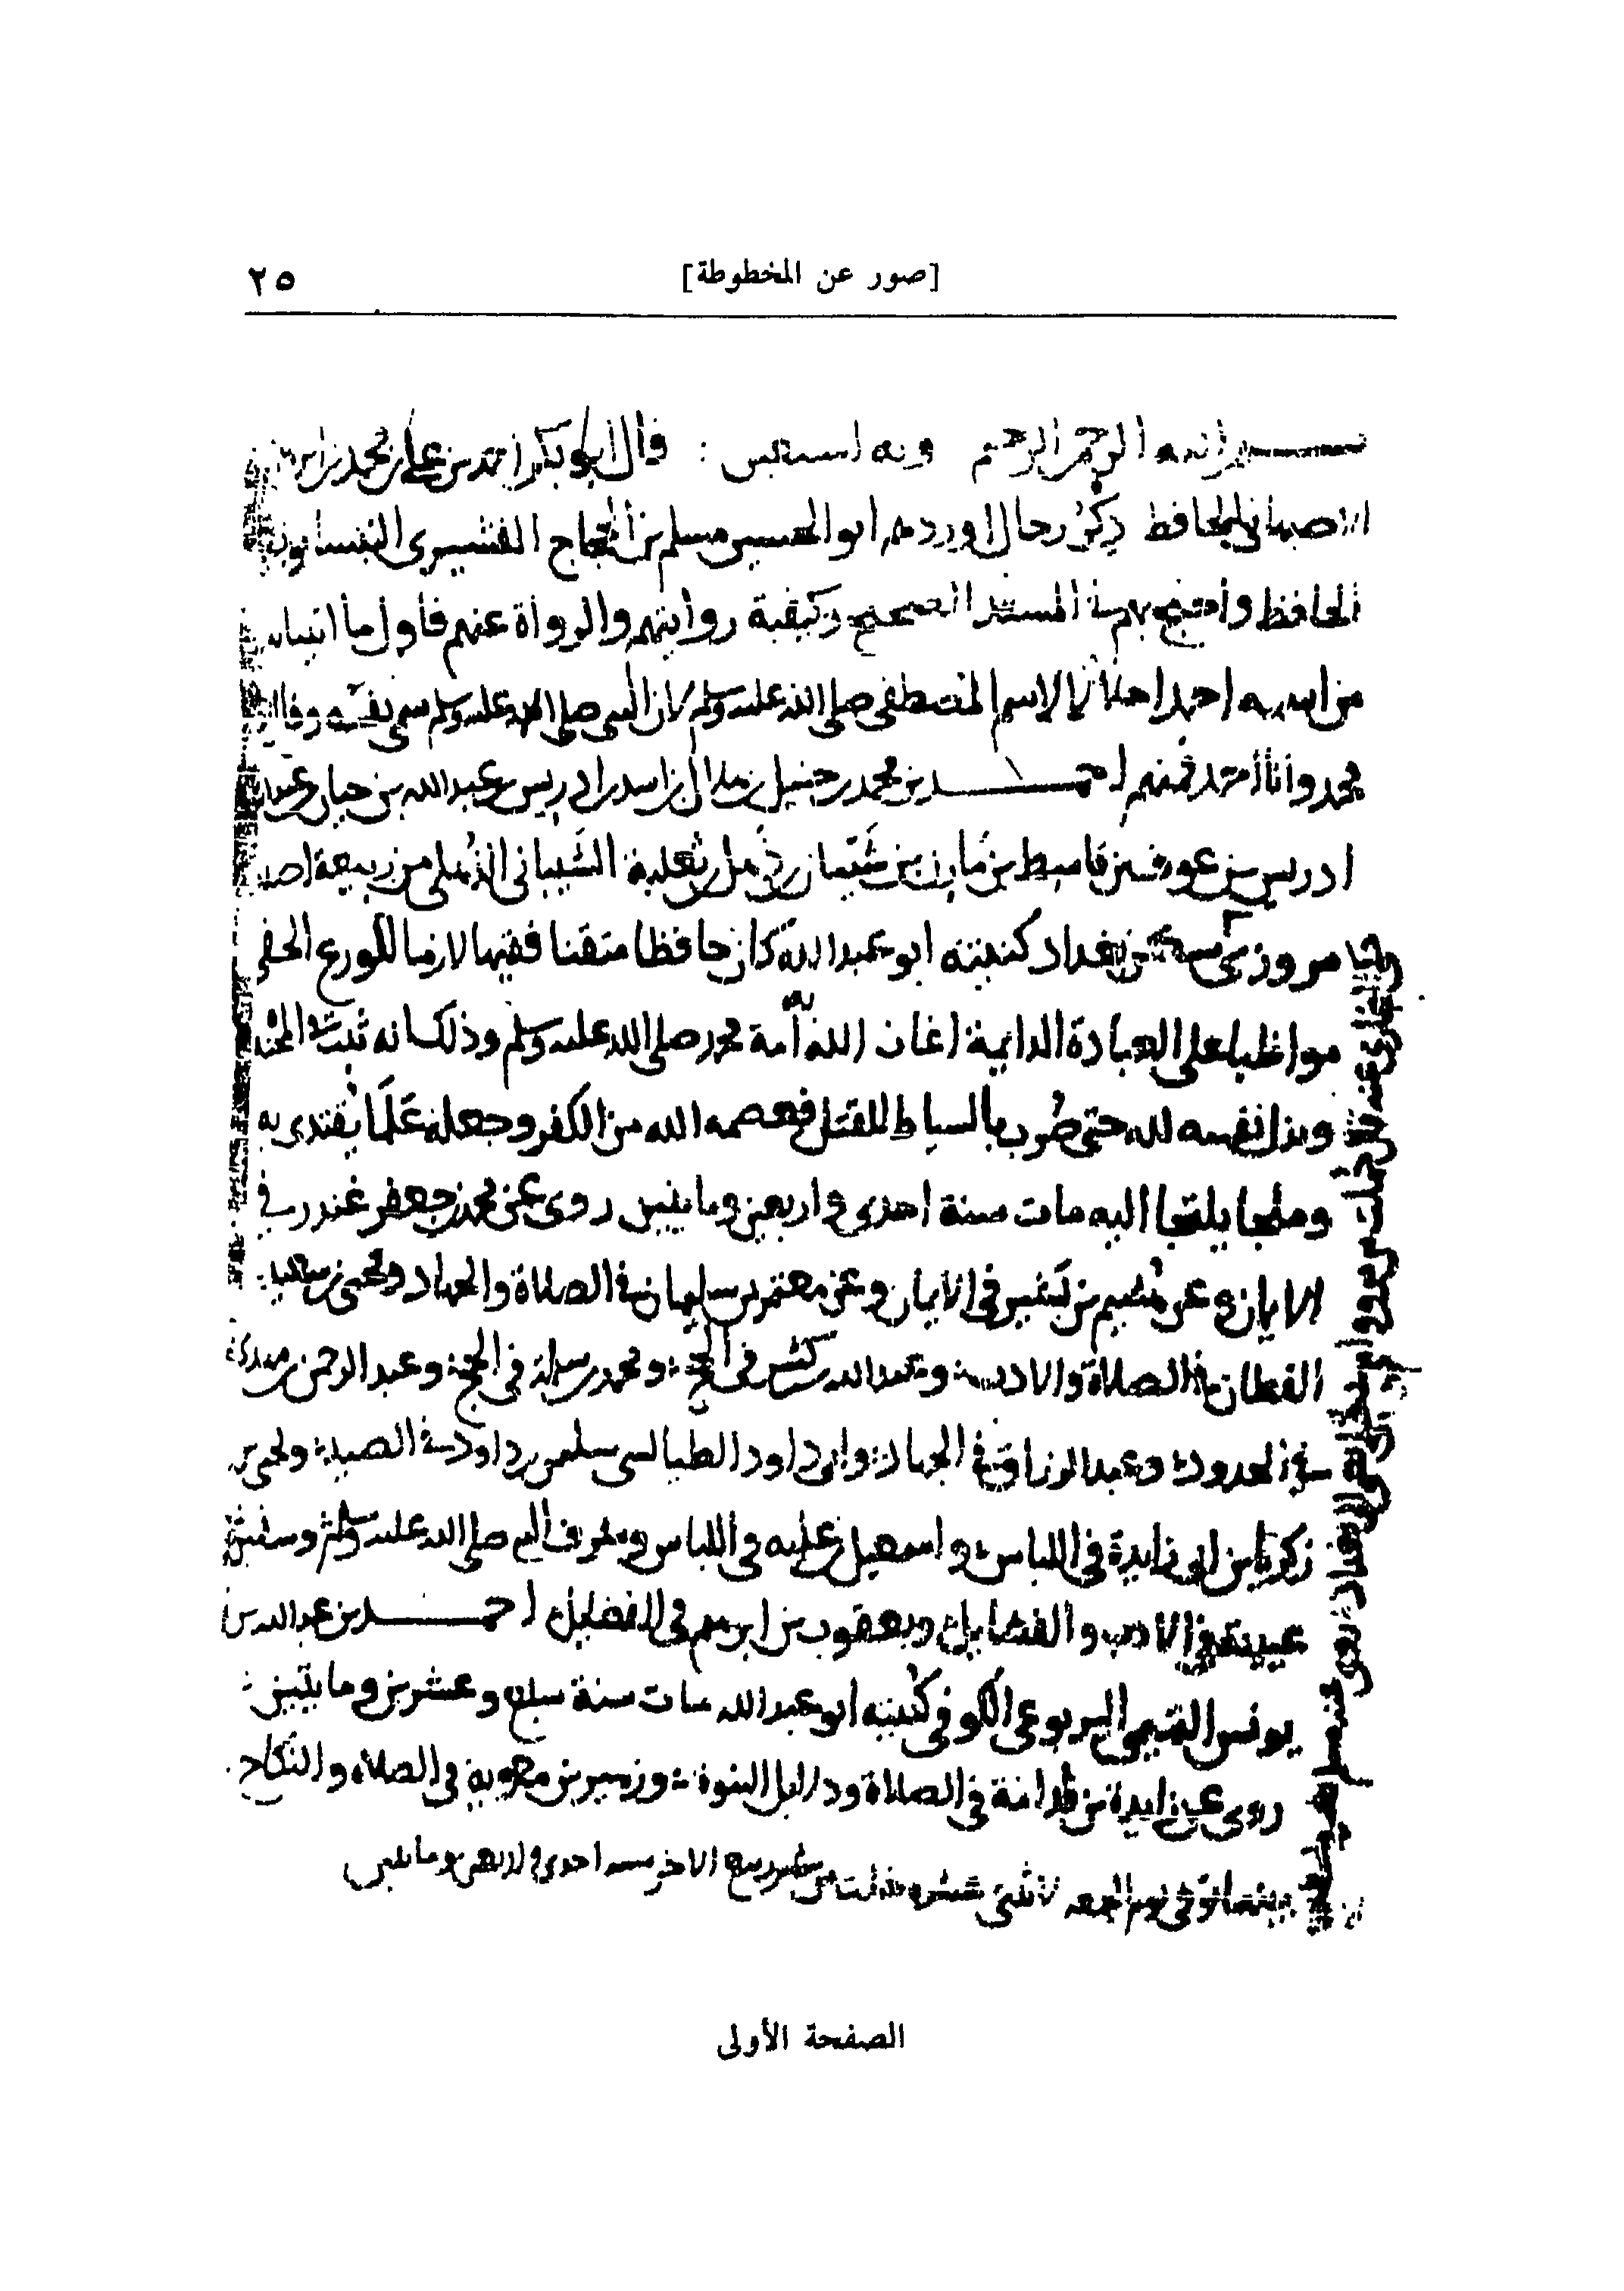 [صور عن المخطوطة]
٢٥
بسم الله الرحمن الرحيم وبه استعين : قال ابو بكر احمد بن علي بن محمد بن ابراهيم
الاصبهاني الحافظ ذكر رجال اوردهم ابو الحسين مسلم بن الحجاج القشيري النيسابوري
الحافظ واحتج بهم في المسند الصحيح وكيفية روايتهم والرواة عنهم فاول ما ابتدات
من اسمه احمد اجلالا لاسم المصطفى صلى الله عليه وسلم لان النبي صلى الله عليه وسلم سمى نفسه وقال
محمد وانا احمد فمنهم احمد بن محمد بن حنبل بن هلال بن اسد بن ادريس بن عبد الله بن حيان بن عبد الله
ادريس بن عوف بن قاسط بن مازن بن شيبان بن ذهل بن ثعلبة الشيباني الذهلي من ربيعة اصله
مروزي سكن بغداد كنيته ابو عبد الله كان حافظا متقنا فقيها لازما للورع الخفي
مواظبا على العبادة الدايمة اغاث الله به امة محمد صلى الله عليه وسلم وذلك انه ثبت في المحنة
وبذل نفسه لله حتى ضرب بالسياط للقتل فعصمه الله من الكفر وجعله علما يقتدى به
وملجا يلتجا اليه مات سنة احدى واربعين ومايتين روى عن محمد بن جعفر غندر في
الايمان وعن هشيم بن بشير في الايمان وعن معتمر بن سليمان في الصلاة والجهاد ويحيى بن سعيد
القطان في الصلاة والادب وعبد الله بن كثير في الحج ومحمد بن سلمة في الحج وعبد الرحمن بن مهدي
في الحدود وعبد الرزاق في الجهاد وابي داود الطيالسي سليمن بن داود في الصيد ويحيى بن
زكريا بن ابي زايدة في اللباس واسمعيل بن علية في اللباس و النبي صلى الله عليه وسلم وسفين بن
عيينة في الادب والفضايل ويعقوب بن ابرهيم في الفضايل احمد بن عبد الله بن
يونس التميمي اليربوعي الكوفي كنيته ابو عبد الله مات سنة سبع وعشرين ومايتين :
روى عن زايدة بن قدامة في الصلاة ودلايل النبوة وزهير بن معوية في الصلاة والنكاح
توفي يوم الجمعة لاثنتي عشرة خلت من شهر ربيع الاخر سنة احدى واربعين ومايتين
الصفحة الأولى